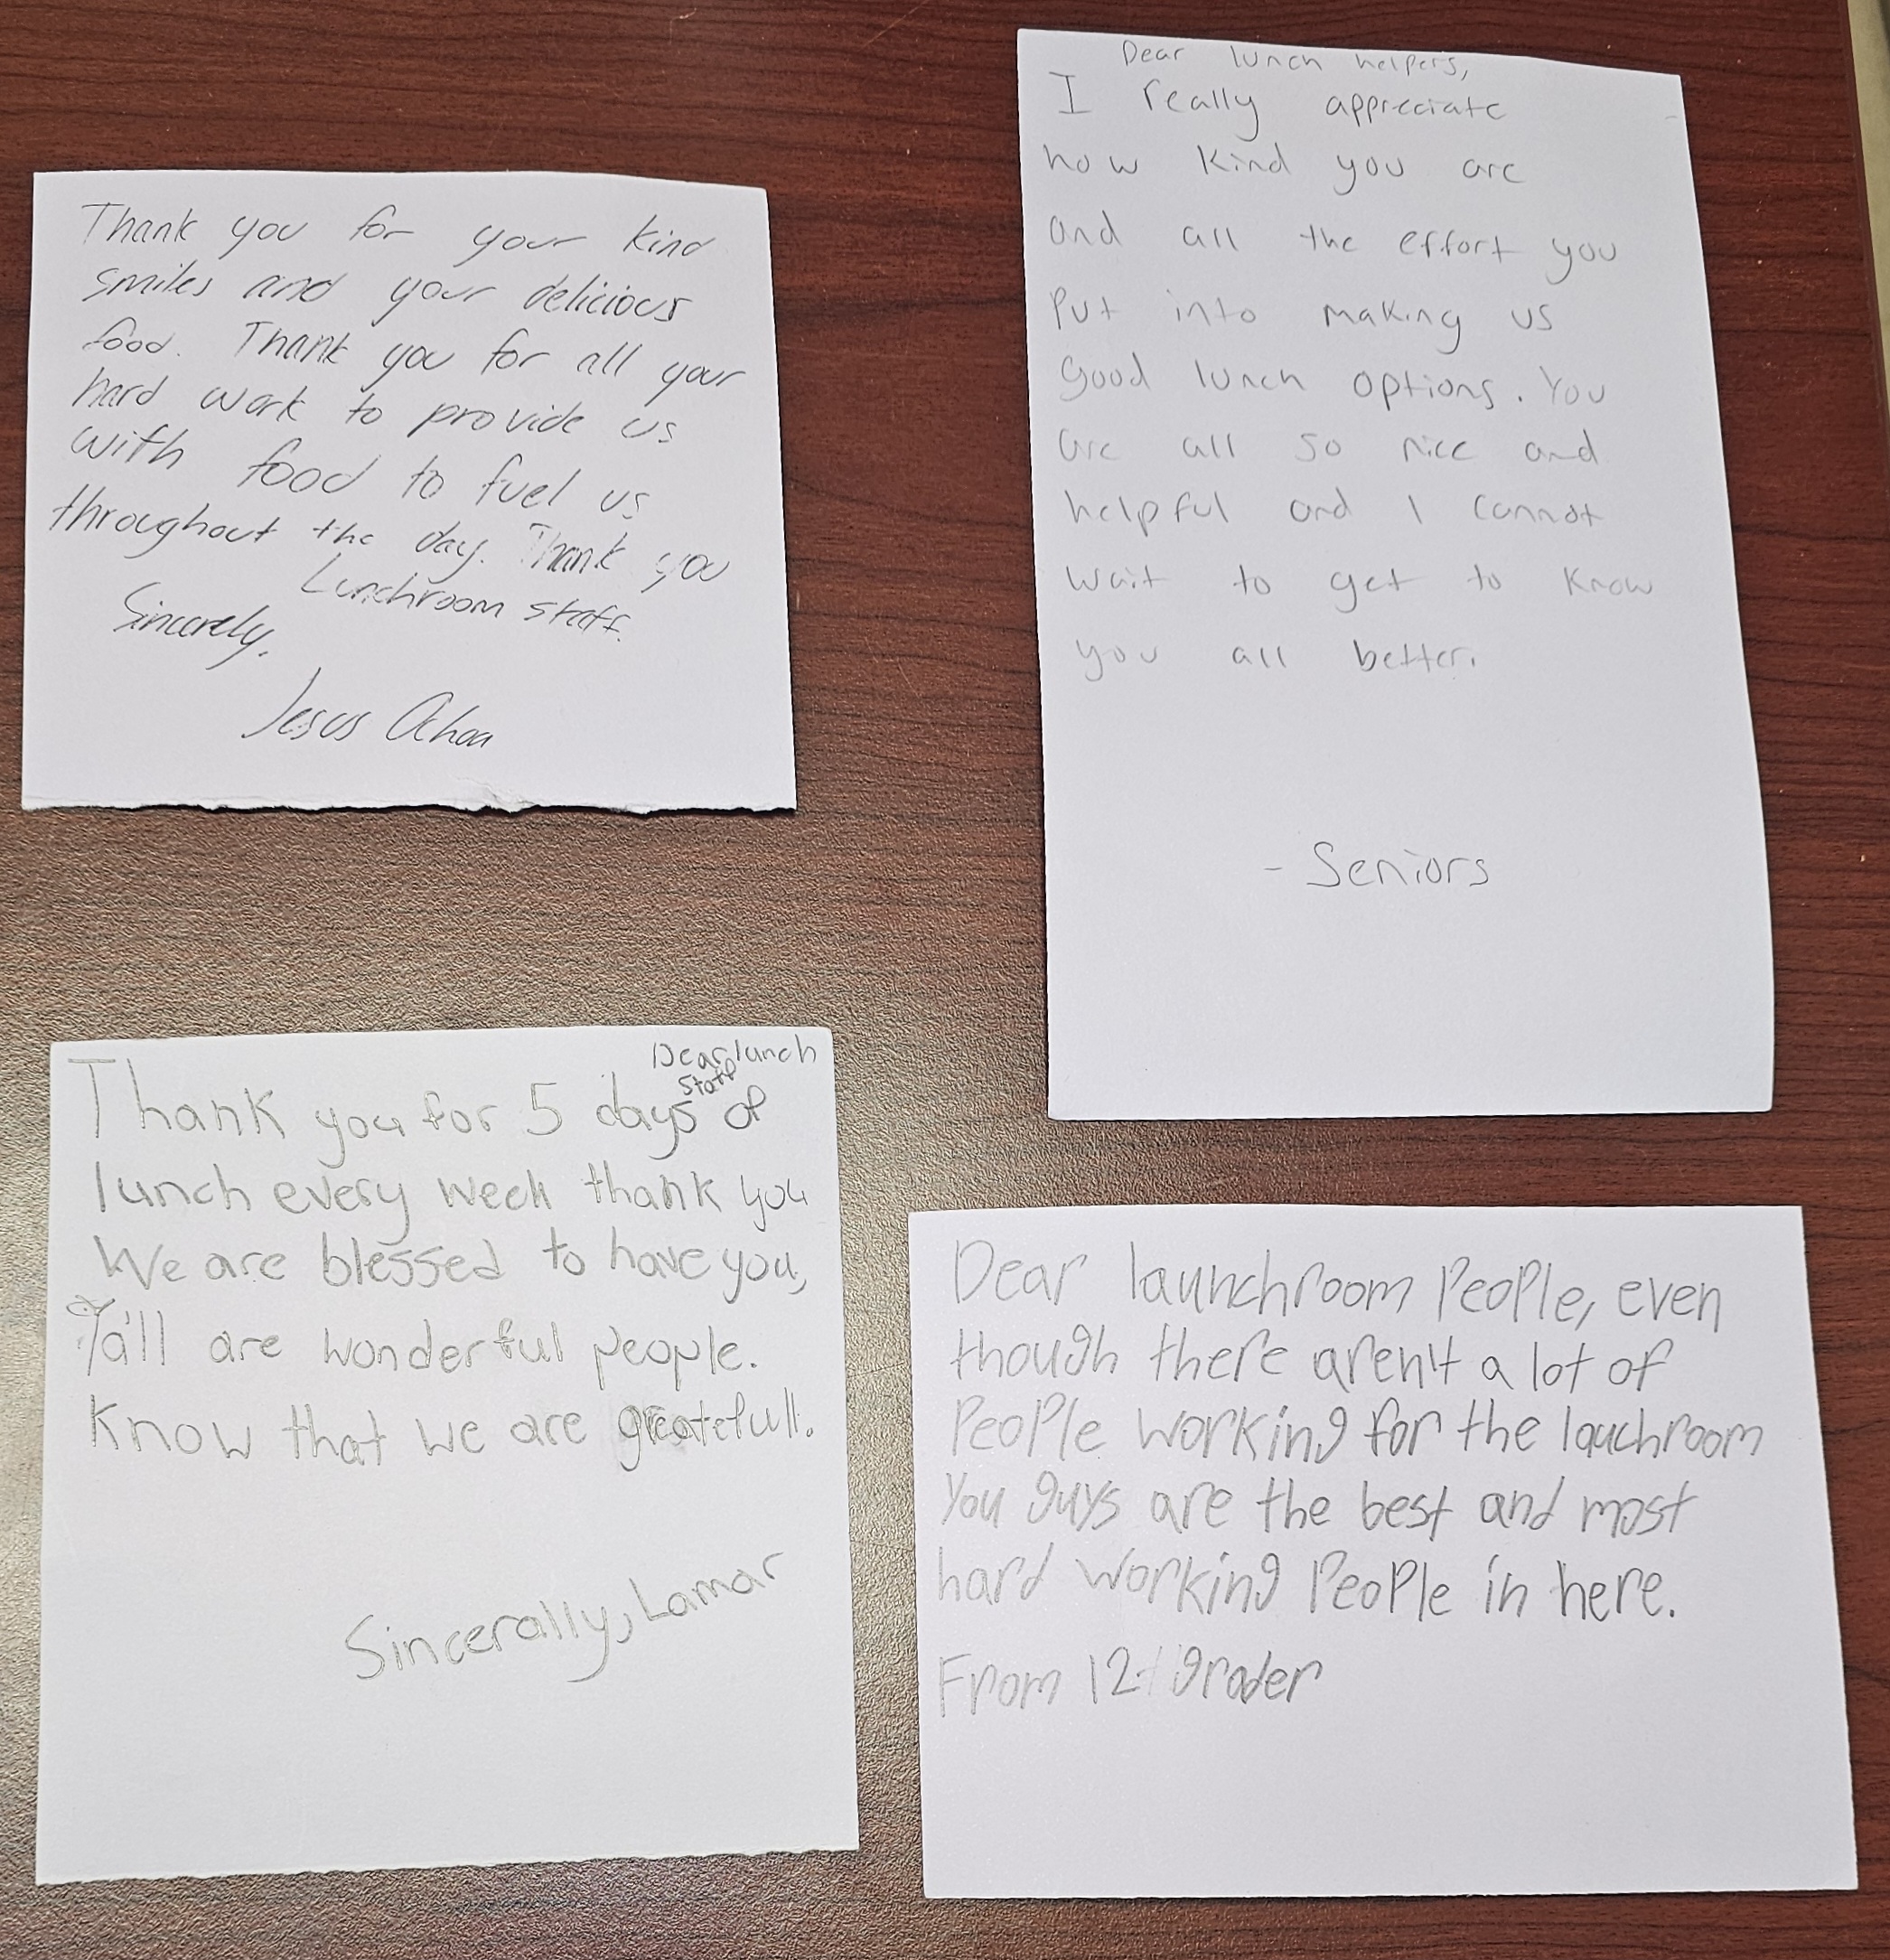 Thank you for your kind
smiles and your delicious
food. Thank you for all your
hard work to provide us
with food to fuel us
throughout the day. Thank you
Lunchroom staff.
Sincerely,
Jesus Ochoa
Dear lunch helpers,
I really appreciate
how kind you are
and all the effort you
put into making us
good lunch options. You
are all so nice and
helpful and I cannot
wait to get to know
you all better.
- Seniors
Dear lunch
staff
Thank you for 5 days of
lunch every week thank you
We are blessed to have you,
Ya'll are wonderful people.
Know that we are greatefull.
Sincerally, Lamar
Dear launchroom People, even
though there aren't a lot of
People working for the lauchroom
You guys are the best and most
hard working People in here.
From 12 grader